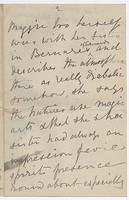 2
Maggie too herself
was with her sister
in Benares and
describes the atmosphere
there as really diabolic
somehow, she says
the pictures are magic
arts & that she & her
sister had always an
oppression &
spirit presence
round about especially